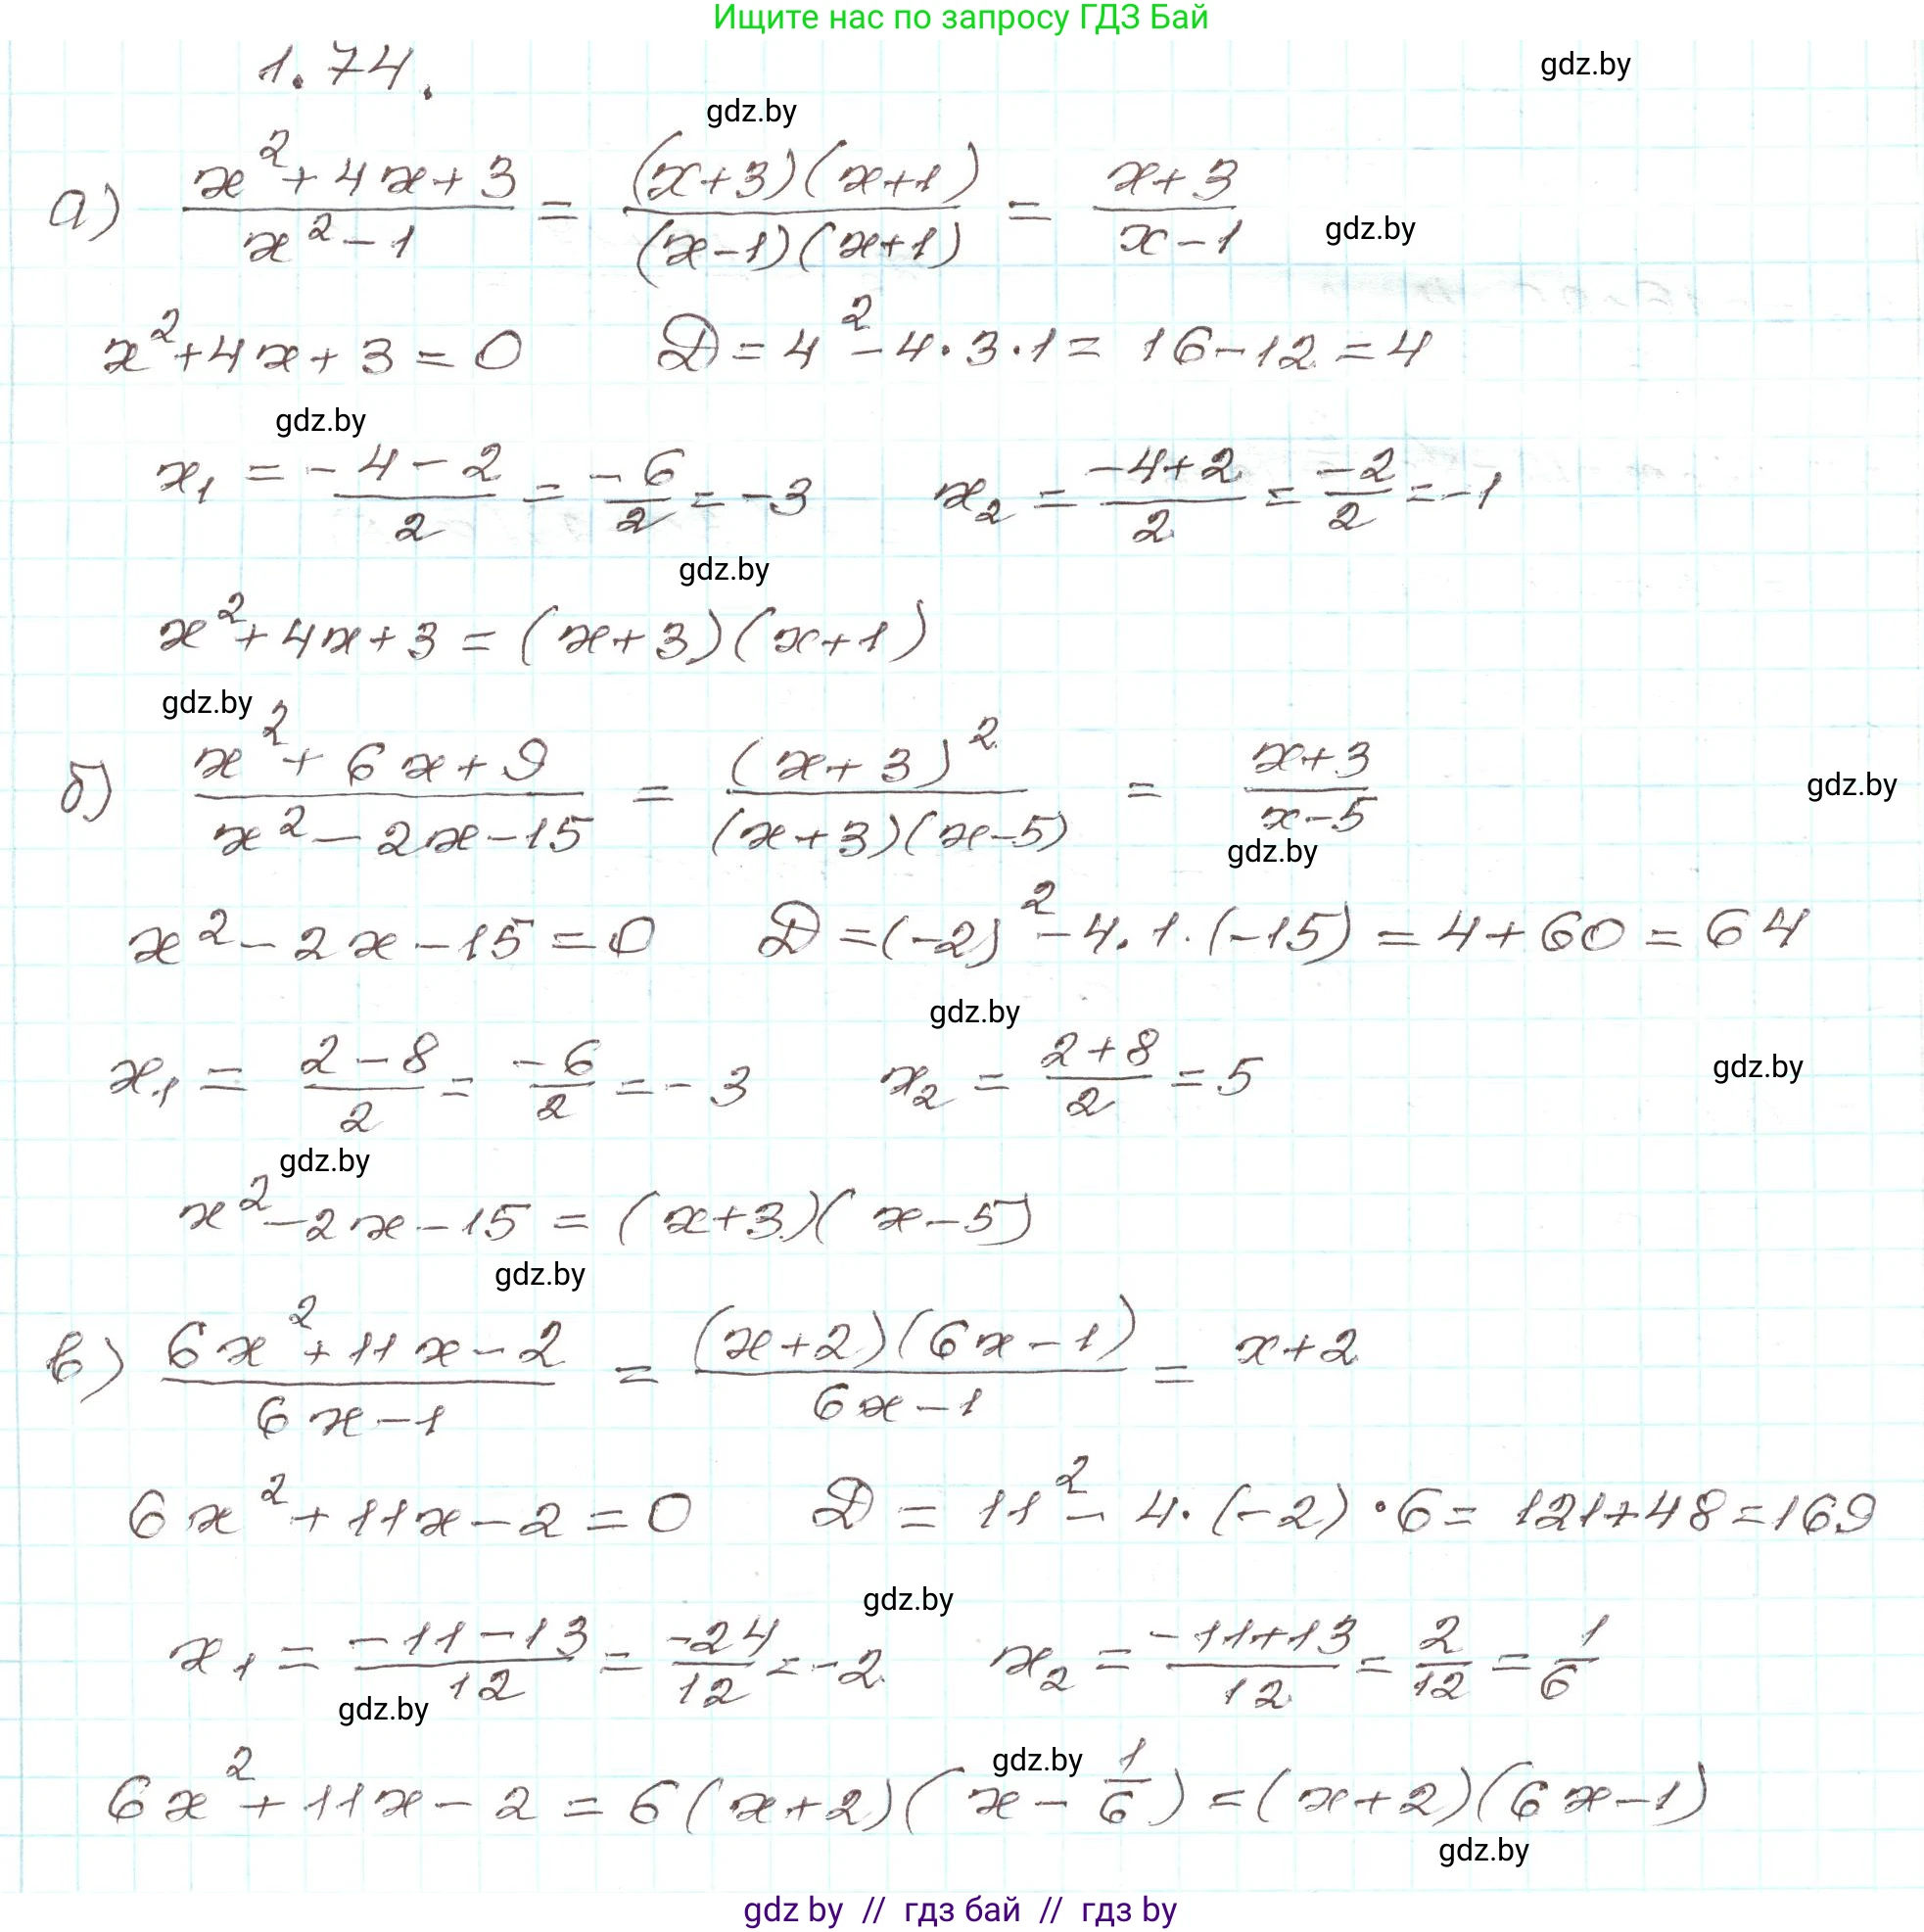 Ищите нас по запросу ГДЗ Бай
1.74.
gdz.by
gdz.by
а) (x²+4x+3)/(x²-1) = ((x+3)(x+1))/((x-1)(x+1)) = (x+3)/(x-1)
gdz.by
x²+4x+3=0 D=4²-4·3·1=16-12=4
gdz.by
x₁=(-4-2)/2=-6/2=-3 x₂=(-4+2)/2=-2/2=-1
gdz.by
x²+4x+3=(x+3)(x+1)
gdz.by
б) (x²+6x+9)/(x²-2x-15) = (x+3)²/((x+3)(x-5)) = (x+3)/(x-5)
gdz.by
gdz.by
x²-2x-15=0 D=(-2)²-4·1·(-15)=4+60=64
gdz.by
x₁=(2-8)/2=-6/2=-3 x₂=(2+8)/2=5
gdz.by
gdz.by
x²-2x-15=(x+3)(x-5)
gdz.by
в) (6x²+11x-2)/(6x-1) = ((x+2)(6x-1))/(6x-1) = x+2
6x²+11x-2=0 D=11²-4·(-2)·6=121+48=169
gdz.by
x₁=(-11-13)/12=-24/12=-2 x₂=(-11+13)/12=2/12=1/6
gdz.by
gdz.by
6x²+11x-2=6(x+2)(x-1/6)=(x+2)(6x-1)
gdz.by
gdz by // гдз бай // гдз by